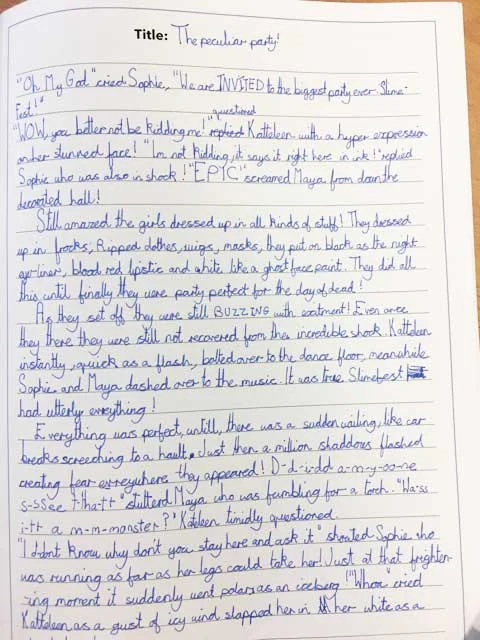 Title: The peculiar party!
"Oh My God" cried Sophie, "We are INVITED to the biggest party ever Slime-
Fest!"
questioned
"WOW, you better not be kidding me!" replied Katteleen with a hyper expression
on her stunned face! "I'm not kidding, it says it right here in ink!" replied
Sophie who was also in shock! "EPIC" screamed Maya from down the
decorated hall!
Still amazed the girls dressed up in all kinds of stuff! They dressed
up in frocks, Ripped clothes, wigs, masks, they put on black as the night
eye-liner, blood red lipstic and white like a ghost face paint. They did all
this until finally they were party perfect for the day of dead!
As they set off they were still BUZZING with exitment! Even once
they there they were still not recovered from the incredible shock. Katteleen
instantly, quick as a flash, bolted over to the dance floor, meanwhile
Sophie and Maya dashed over to the music. It was true. Slimefest
had utterly everything!
Everything was perfect, untill, there was a sudden wailing, like car
breaks screeching to a hault. Just then a million shaddows flashed
creating fear everywhere they appeared! D-d-i-dd a-n-y-oo-ne
s-ssee t-ha-tt" stutterd Maya who was fumbling for a torch. "Wa-ss
i-tt a m-m-monster?" Kateleen timidly questioned.
"I don't know why don't you stay here and ask it" shouted Sophie who
was running as far as her legs could take her! Just at that frighten-
ing moment it suddenly went polar, as an iceberg! "Whoa" cried
Katteleen as a gust of icy wind slapped her in her white as a